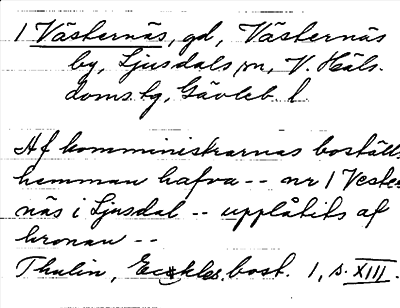 1 Västernäs, gd, Västernäs
by, Ljusdals sn, V. Häls.
doms. tg, Gävleb. l
Af komministrarnas boställs
hemman hafva -- nr 1 Vester
näs i Ljusdal -- upplåtits af
kronan --
Thulin, Eckles. bost. 1, s. XIII.